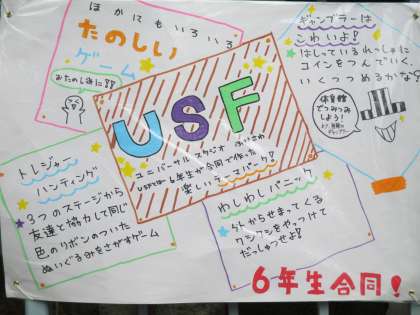 ほかにもいろいろ
たのしい
ゲーム
おたのしみに!!
ギャンブラーは
こわいよ!
はしっているれっしゃに
コインをつんでいく。
いくつつめるかな?
体育館
でつみつみ
しよう!
USF
ユニバーサルスタジオ ふじさわ
USFとは6年生が合同で作った
楽しいテーマパーク!
トレジャー
ハンティング
3つのステージから
友達と協力して同じ
色のリボンのついた
ぬいぐるみをさがすゲーム
わしわしパニック
外からせまってくる
ワシワシをやっつけて
だっしゅつせよ!
6年生合同!